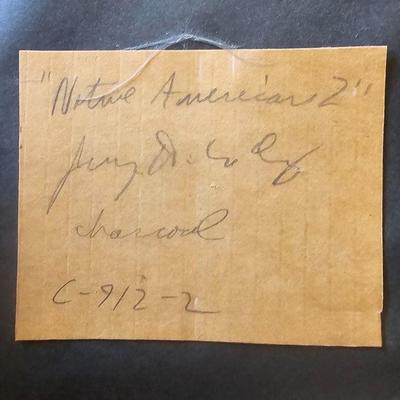 "Native American 2"
Jerry
charcoal
C-912-2